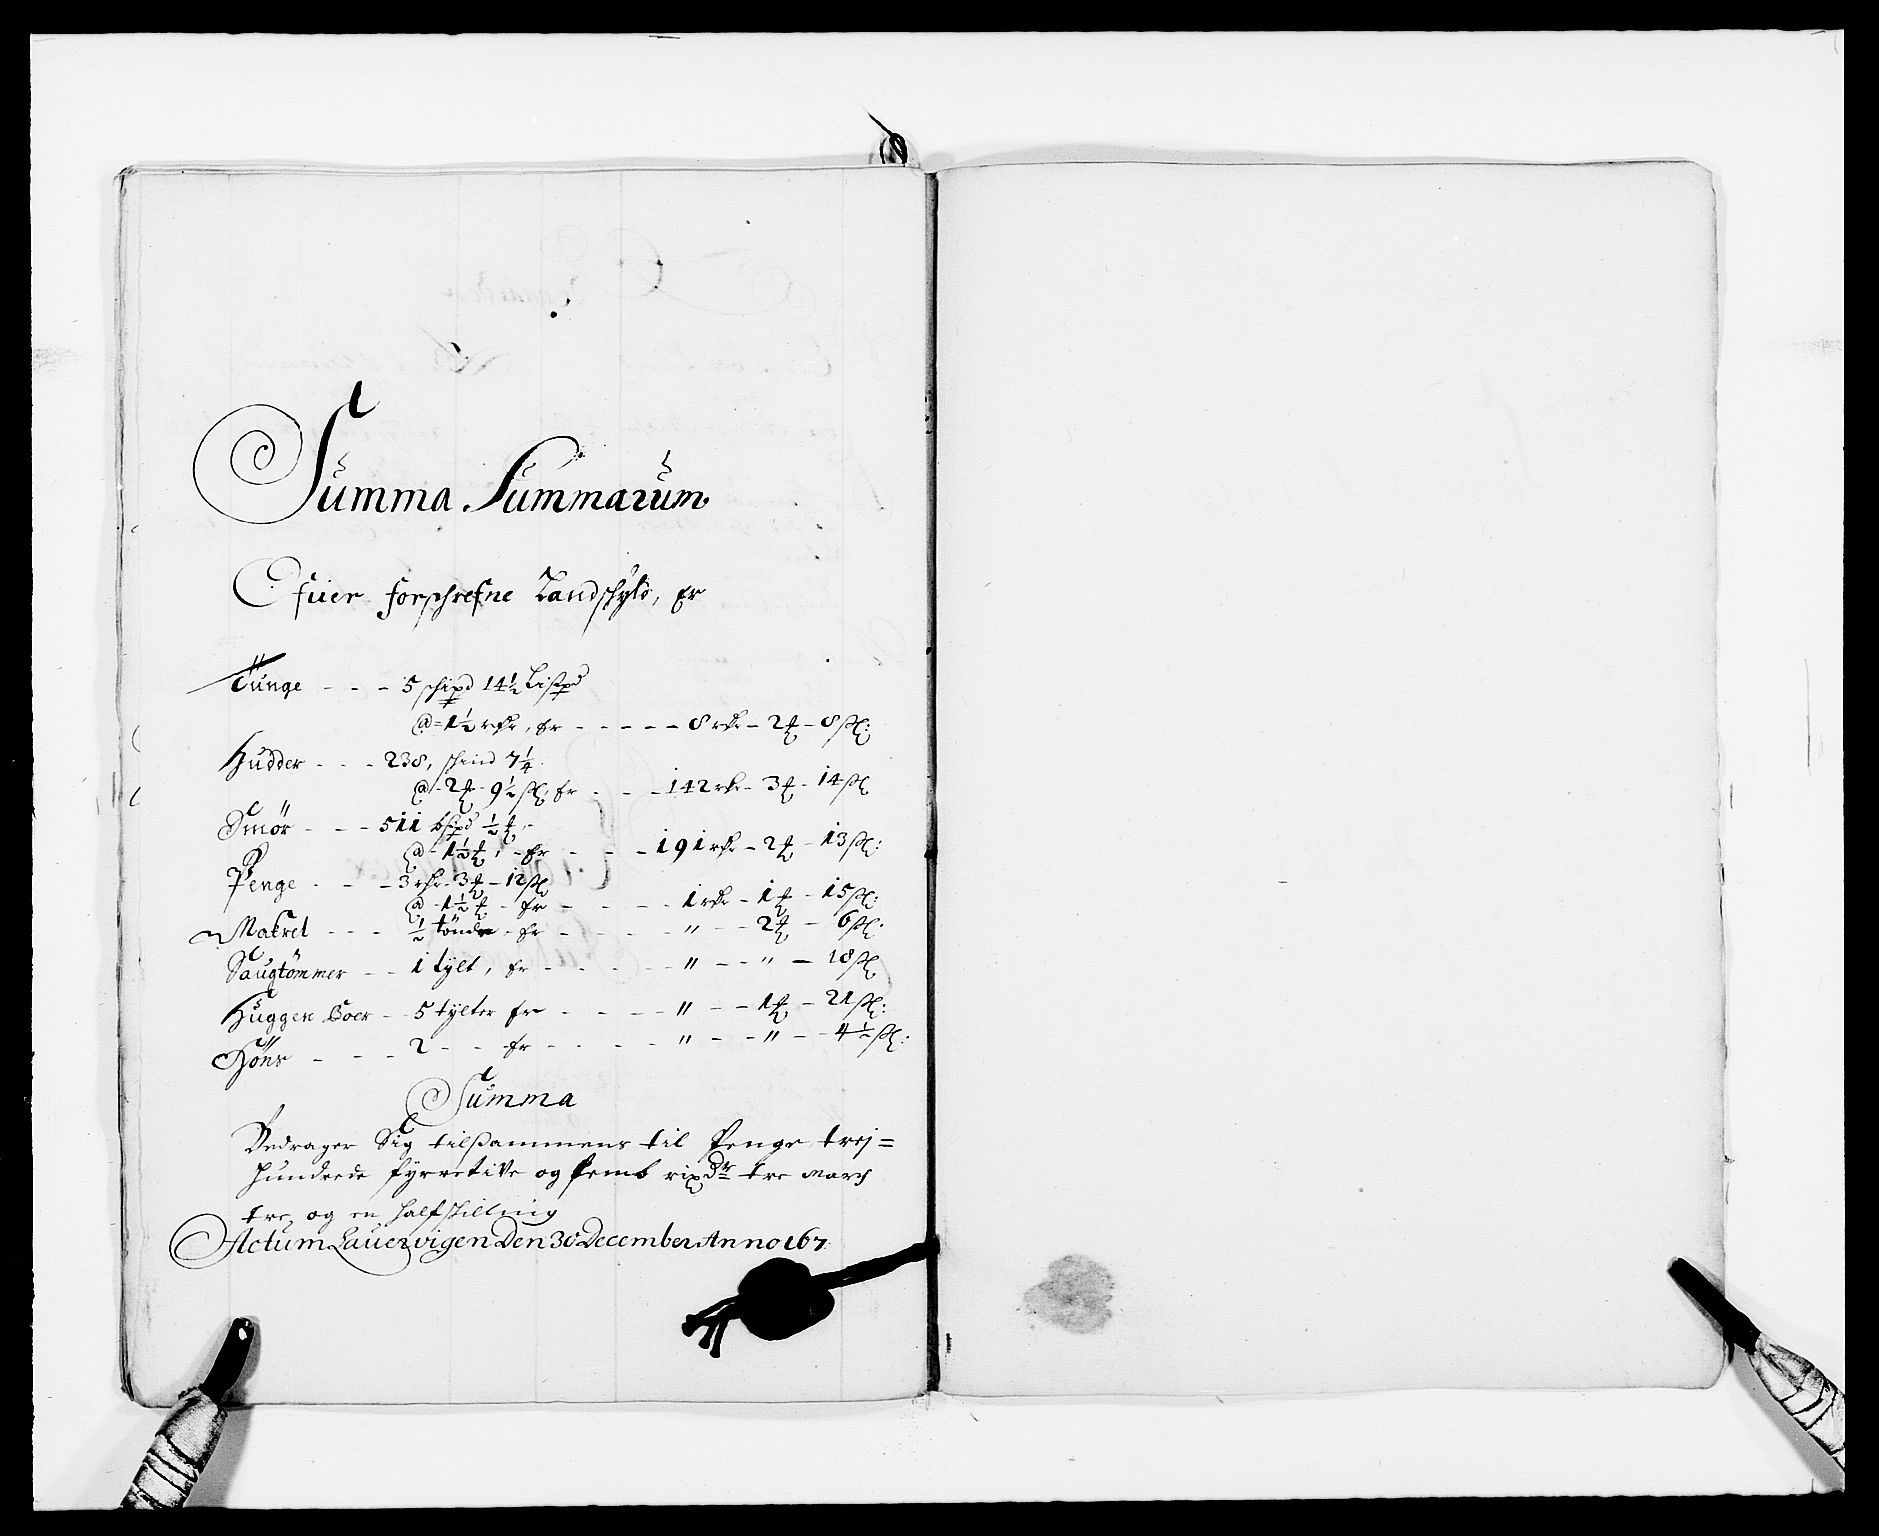 Summa Summarum
Ofuer forschrefne Landschyld, Er
Tunge - - - 5 schipd 14½ Lispd
@ 1½ rdr, Er - - - - - 8 rdr - 2 ₰ - 8 sk:
Hudder - - - 238, schind 7¼
@ 2 ₰ - 9½ sk, Er - - - 142 rdr - 3 ₰ - 14 sk
Smör - - - 511 bsmpd ½ ₰ -
@ - 1½ ₰, - Er - - - 191 rdr - 2 ₰ - 13 sk:
Penge - - - 3 rdr - 3 ₰ - 12 sk
@ - 1½ ₰ - Er - - - - 1 rdr - 1 ₰ - 15 sk:
Makrel - - - ½ tönde - Er - - - - " - - 2 ₰ - 6 sk:
Saugtömmer - - 1 tylt, Er - - - - " - - " - 18 sk
Huggen Boer - - 5 tylter Er - - - - " - - 1 ₰ - 21 sk:
Höns - - - 2 - - Er - - - - " - - " - - 4½ sk:
Summa
Bedrager Sig tilsammens til Penge trej=
hundrede fyrretive og femb rixdr tre March
tre, og en halfschilling
Actum Lauervigen Den 30 December Anno 167